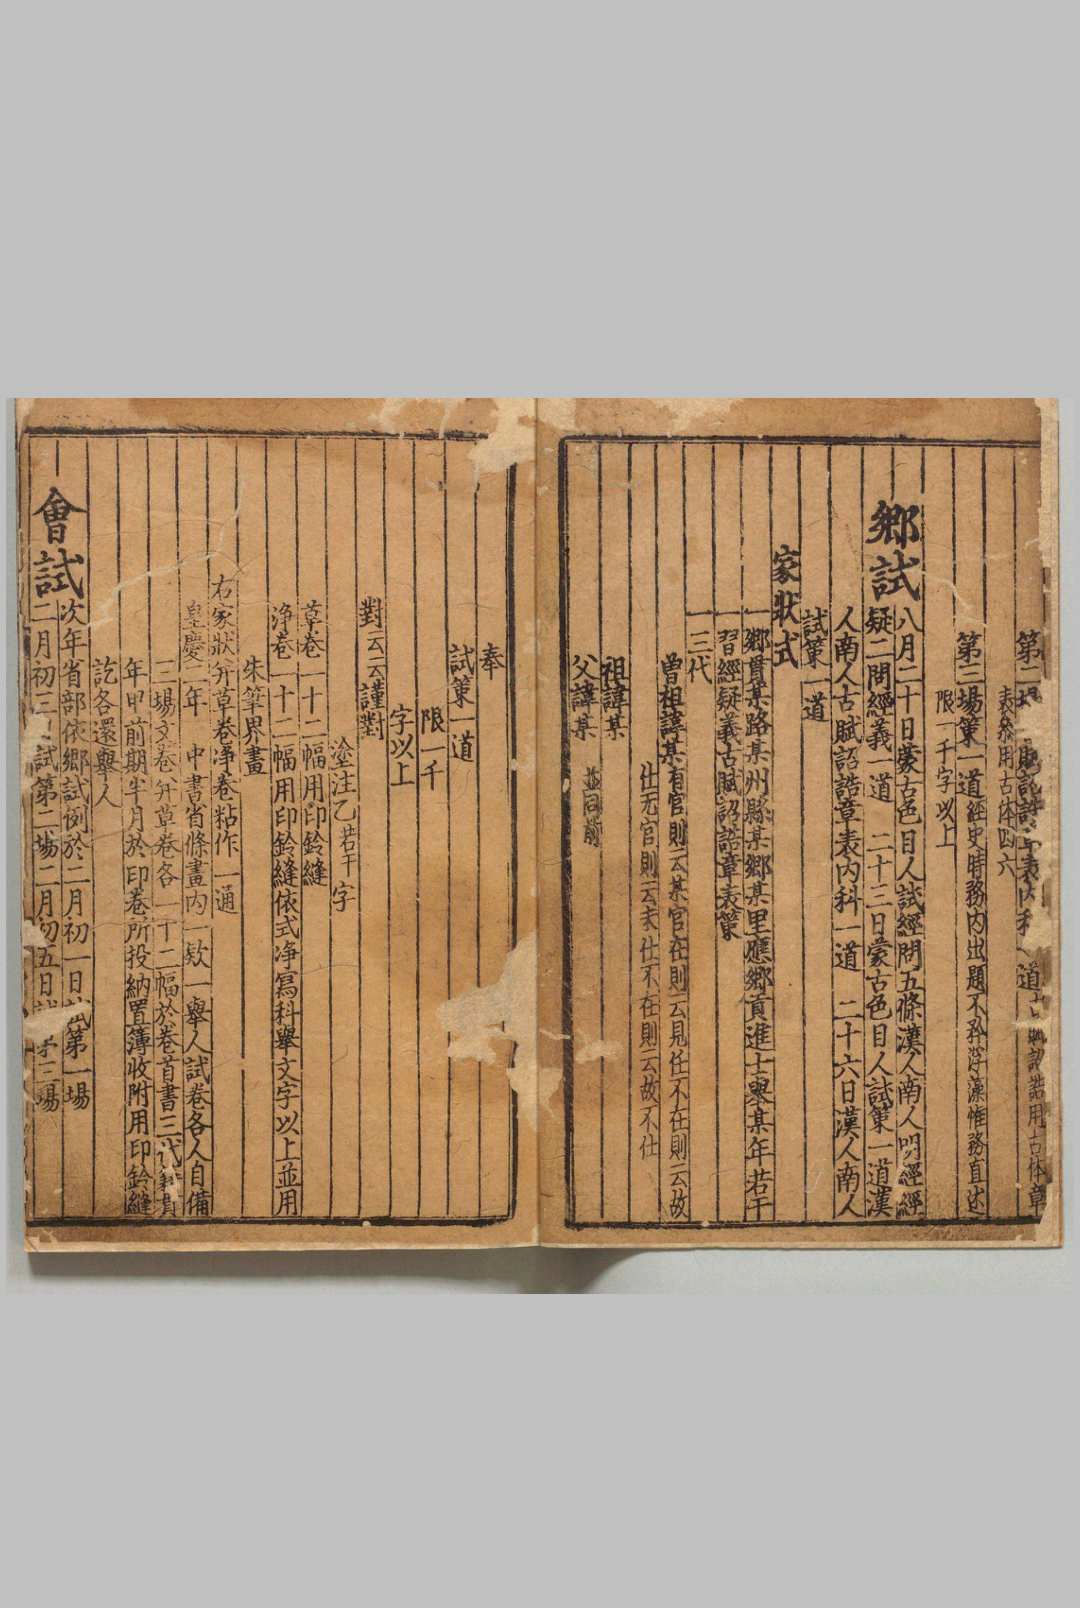 第二場 賦詔誥章表內科一道古賦詔誥用古体章
表參用古体四六
第三場策一道經史時務內出題不矜浮藻惟務直述
限一千字以上
鄉試八月二十日蒙古色目人試經問五條漢人南人明經經
疑二問經義一道 二十三日蒙古色目人試策一道漢
人南人古賦詔誥章表內科一道 二十六日漢人南人
試策一道
家狀式
一鄉貫某路某州縣某鄉某里應鄉貢進士舉某年若干
習經疑義古賦詔誥章表策
一三代
曾祖諱某有官則云某官在則云見任不在則云故
仕无官則云未仕不在則云故不仕
祖諱某
父諱某 並同前
奉
試策一道
限一千
字以上
對云云謹對
塗注乙若干字
草卷一十二幅用印鈐縫
淨卷一十二幅用印鈐縫依式淨寫科舉文字以上並用
朱筆界畫
右家狀并草卷淨卷粘作一通
皇慶二年 中書省條畫內一欵一舉人試卷各人自備
三場文卷并草卷各一十二幅於卷首書三代籍貫
年甲前期半月於印卷所投納置簿收附用印鈐縫
訖各還舉人
會試次年省部依鄉試例於二月初一日試第一場
二月初三日試第二場二月初五日試第三場